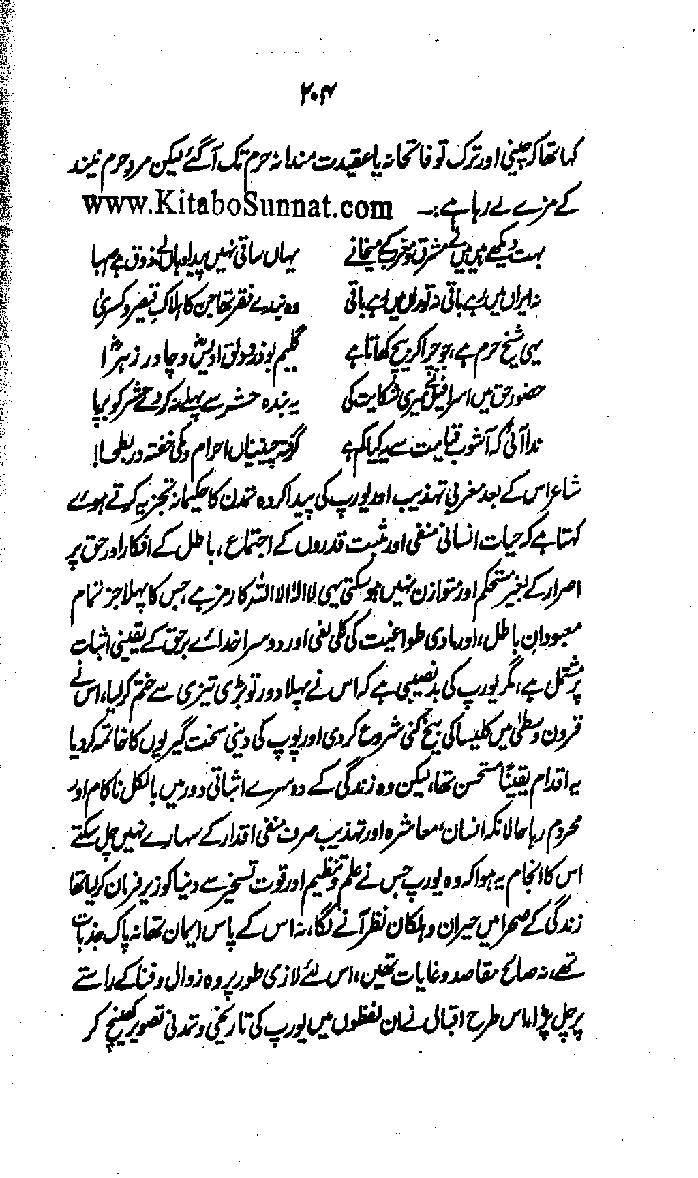 ۲۰۴
کہا تھا کہ چینی اور ترک تو فاتحانہ یا عقیدت مندانہ حرم تک آگئے لیکن مرد حرم نیند
کے مزے لے رہا ہے :۔ www.KitaboSunnat.com
بہت دیکھے ہیں میں نے مشرق و مغرب کے میخانے یہاں ساقی نہیں پیدا وہاں بے ذوق ہے صہبا
نہ ایراں میں رہے باقی نہ توراں میں رہے باقی وہ بندے فقر تھا جن کا ہلاک قیصر و کسریٰ
یہی شیخ حرم ہے، جو چرا کر بیچ کھاتا ہے گلیم بوذر و دلق اویس و چادر زہرا
حضور حق میں اسرافیل نے میری شکایت کی یہ بندہ حشر سے پہلے نہ کر دے حشر کو برپا
ندا آئی کہ آشوب قیامت سے یہ کیا کم ہے گرفتہ چینیاں احرام و مکی خفتہ در بطحا!
شاعر اس کے بعد مغربی تہذیب اور یورپ کی پیدا کردہ تمدن کا حکیمانہ تجزیہ کرتے ہوئے
کہتا ہے کہ حیات انسانی منفی اور مثبت قدروں کے اجتماع، باطل کے افکار اور حق پر
اصرار کے بغیر مستحکم اور متوازن نہیں ہوسکتی یہی لا الٰہ الا اللہ کا رمز ہے، جس کا پہلا جز تمام
معبودان باطل، اور مادی طواغیت کی کلی نفی اور دوسرا خدائے برحق کے یقینی اثبات
پر مشتمل ہے، مگر یورپ کی بدنصیبی ہے کہ اس نے پہلا دور تو بڑی تیزی سے ختم کر لیا، اس نے
قرون وسطیٰ میں کلیسا کی بیخ کنی شروع کر دی اور پوپ کی دینی سخت گیریوں کا خاتمہ کر دیا
یہ اقدام یقیناً مستحسن تھا، لیکن وہ زندگی کے دوسرے اثباتی دور میں بالکل ناکام اور
محروم رہا حالانکہ انسان، معاشرہ اور تہذیب صرف منفی اقدار کے سہارے نہیں چل سکتے
اس کا انجام یہ ہوا کہ وہ یورپ جس نے علم و تنظیم اور قوت تسخیر سے دنیا کو زیر فرمان کر لیا تھا
زندگی کے صحرا میں حیران و ہلکان نظر آنے لگا، نہ اس کے پاس ایمان تھا نہ پاک جذبات
تھے، نہ صالح مقاصد و غایات تھیں، اس لئے لازمی طور پر وہ زوال و فنا کے راستے
پر چل پڑا، اس طرح اقبال نے ان لفظوں میں یورپ کی تاریخی و تمدنی تصویر کھینچ کر